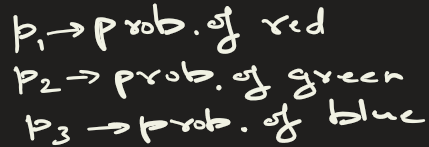 p₁ → prob. of red
p₂ → prob. of green
p₃ → prob. of blue